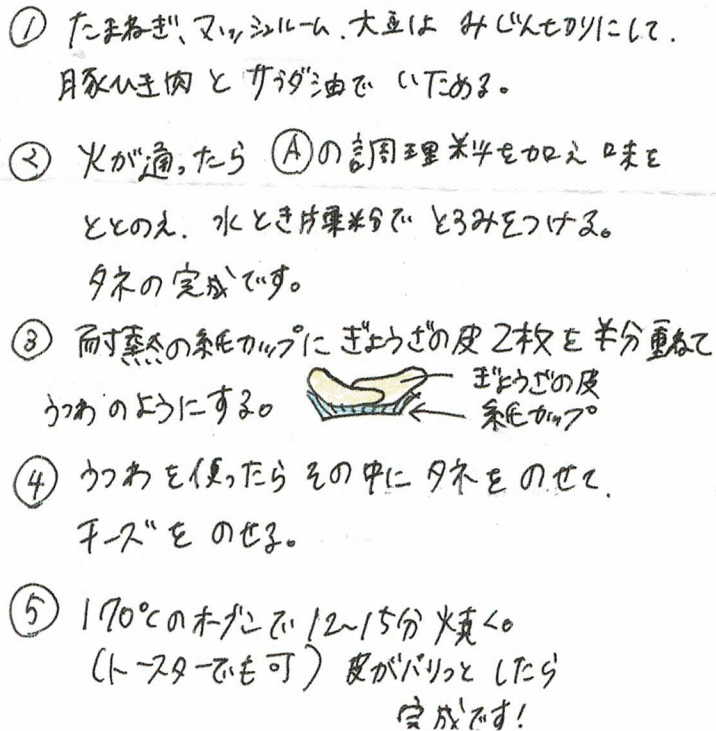 ① たまねぎ、マッシュルーム、大豆は みじん切りにして、
豚ひき肉と サラダ油で いためる。
② 火が通ったら Ⓐの調理料を加え 味を
ととのえ、水とき片栗粉で とろみをつける。
タネの完成です。
③ 耐熱の紙カップに ぎょうざの皮 2枚を 半分重ねて
うつわのようにする。
ぎょうざの皮
紙カップ
④ うつわを使ったら その中に タネを のせて、
チーズを のせる。
⑤ 170℃のオーブンで 12〜15分 焼く。
(トースターでも可) 皮がパリっと したら
完成です!